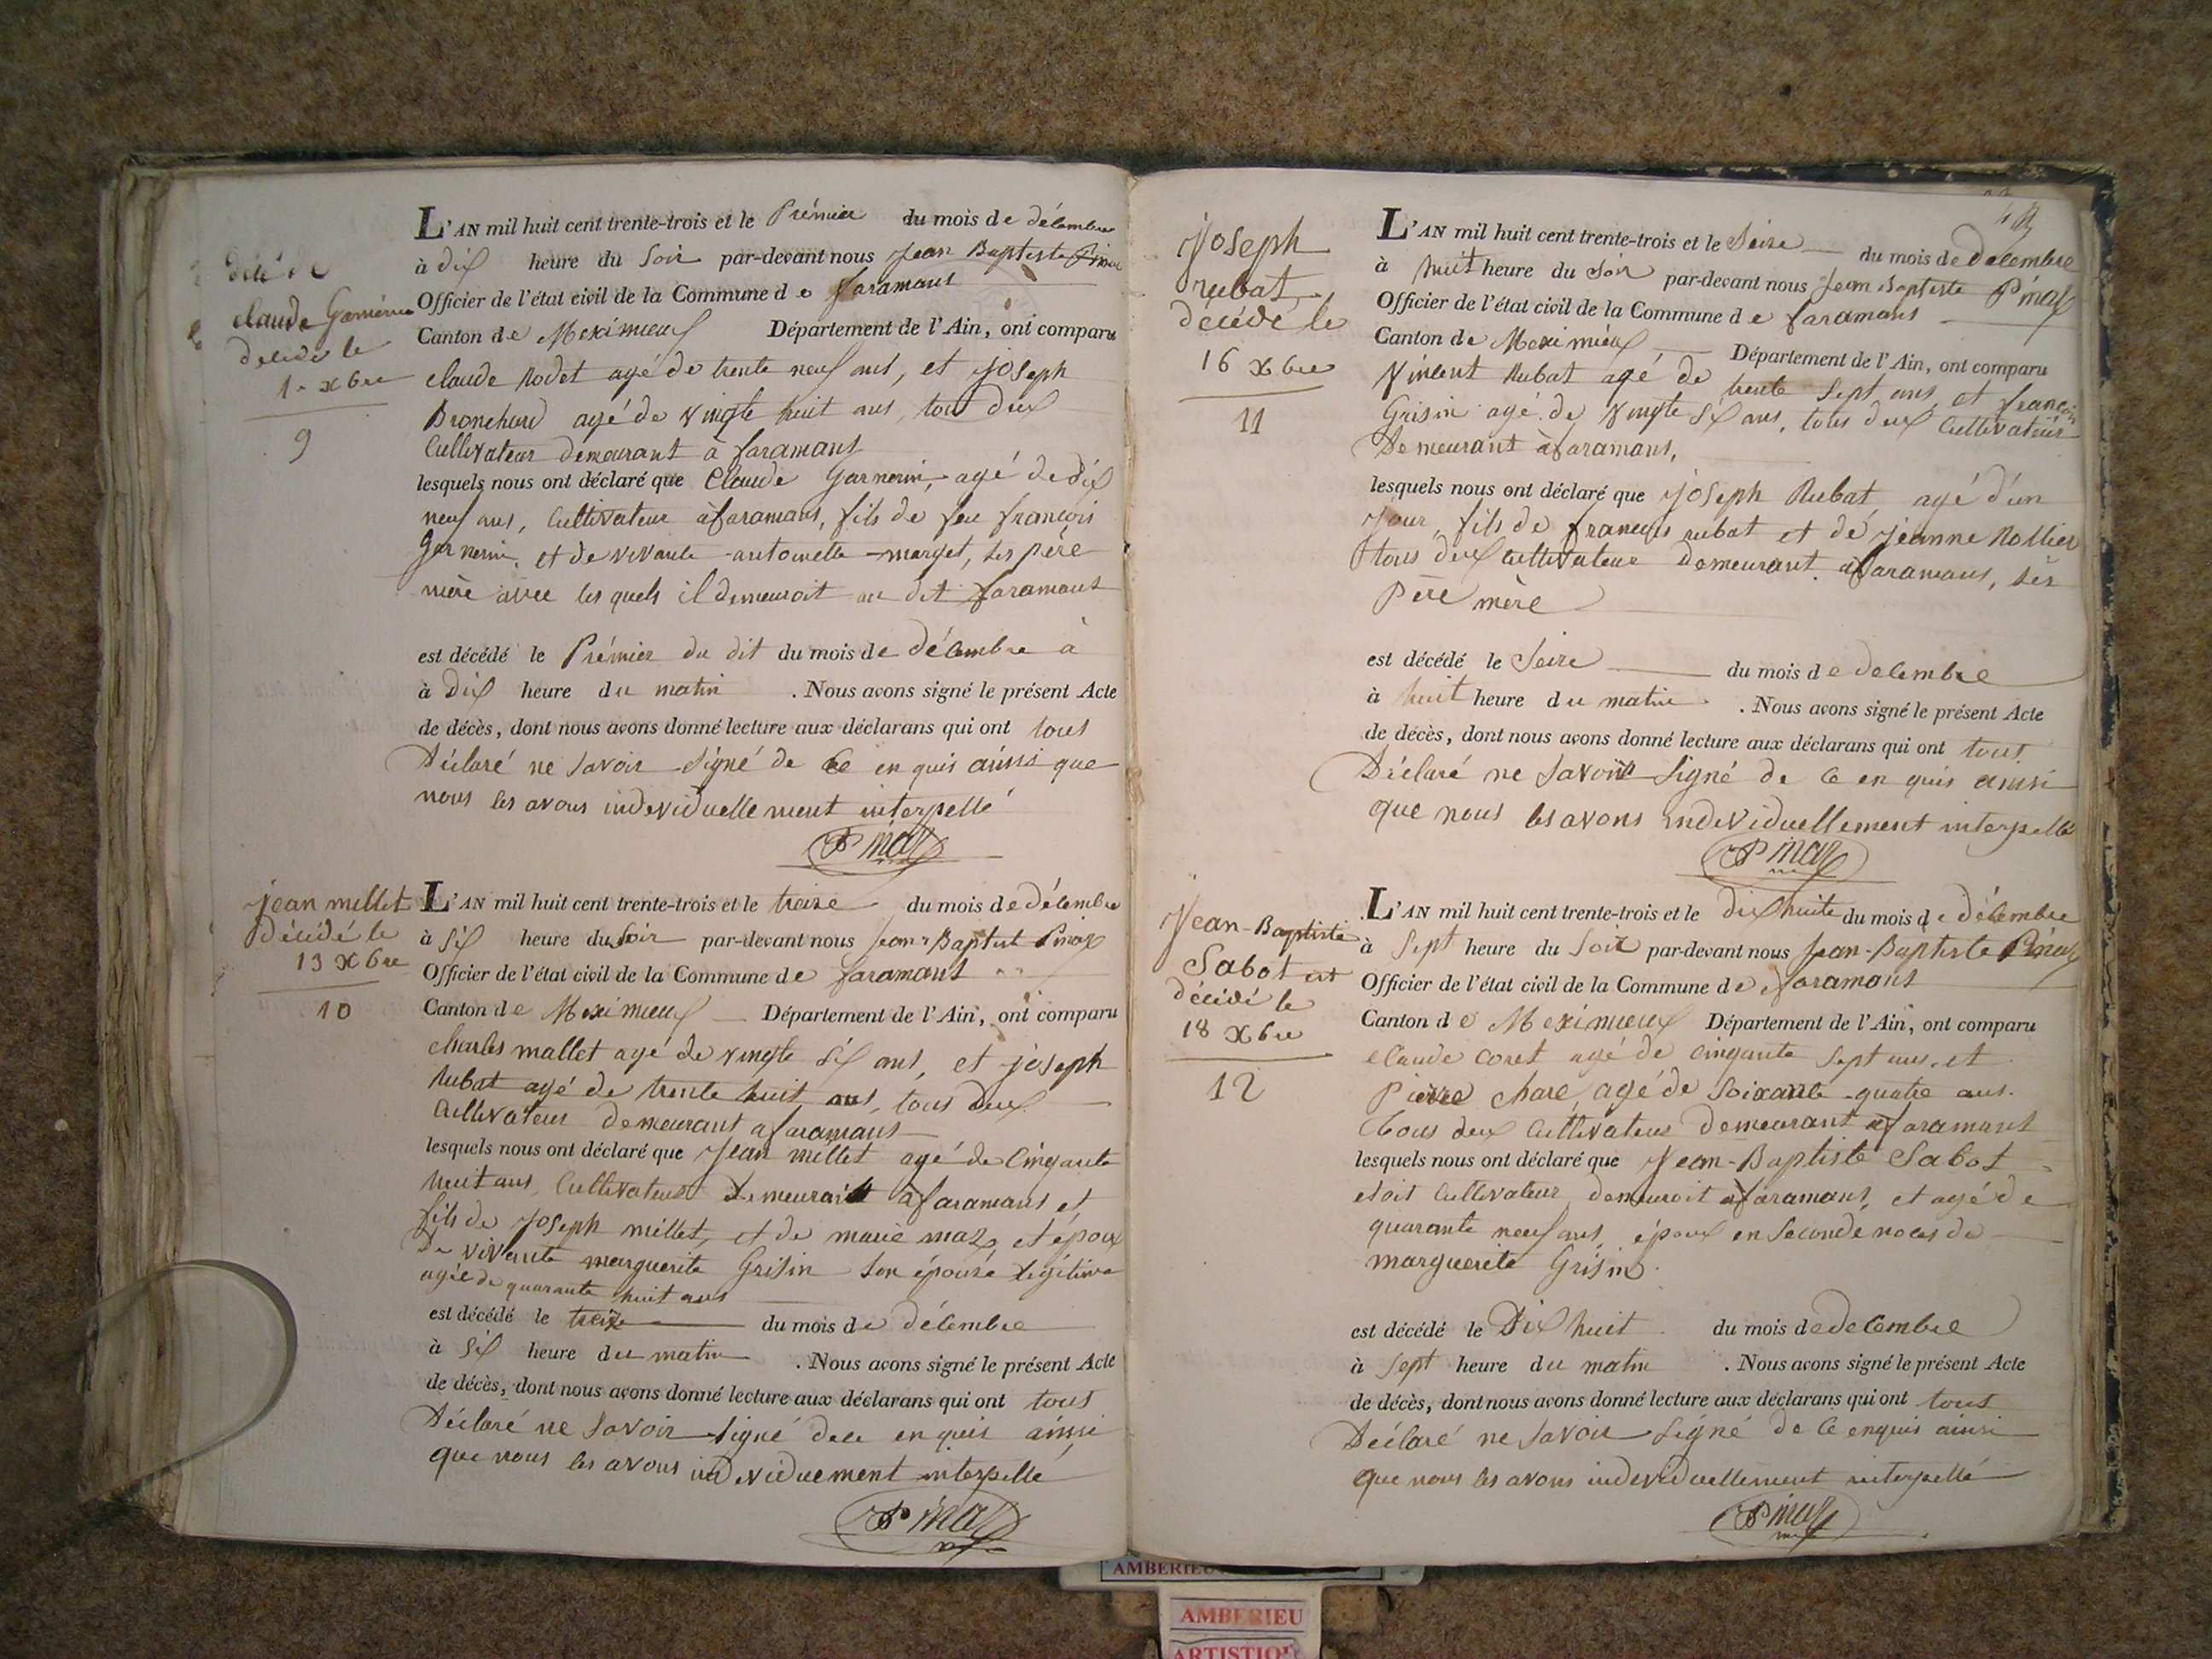 décé de
claude Garnerin
décédé le
1er xbre
9
L'AN mil huit cent trente-trois et le Prémier du mois de décembre
à dix heure du soir par-devant nous Jean Baptiste Pinaz
Officier de l'état civil de la Commune de faramans
Canton de Meximieux Département de l'Ain, ont comparu
claude Rodet agé de trente neuf ans, et joseph
Bronchard agé de vingte huit ans, tous deux
Cultivateur demeurant à faramans
lesquels nous ont déclaré que Claude Garnerin, agé de dix
neuf ans, Cultivateur à faramans, fils de feu françois
Garnerin, et de vivante antoinette marget, ses père
mère avec les quels il demeuroit au dit faramans
est décédé le Prémier du dit du mois de décembre à
à dix heure du matin . Nous avons signé le présent Acte
de décès, dont nous avons donné lecture aux déclarans qui ont tous
Déclaré ne savoir signé de ce en quis ainsi que
nous les avons individuellement interpellé
Pinaz
jean millet
décédé le
13 xbre
10
L'AN mil huit cent trente-trois et le treize du mois de décembre
à six heure du soir par-devant nous Jean Baptist Pinaz
Officier de l'état civil de la Commune de faramans
Canton de Meximieux Département de l'Ain, ont comparu
charles mallet agé de vingte six ans, et joseph
Rubat agé de trente huit ans, tous deux
Cultivateur demeurant a faramans
lesquels nous ont déclaré que Jean millet agé de Cinqante
huit ans, Cultivateur demeurait à faramans et
fils de Joseph millet, et de marie maz, et époux
de vivante marguerite Grisin son épouse légitime
agée de quarante huit ans
est décédé le treize du mois de décembre
à six heure du matin . Nous avons signé le présent Acte
de décès, dont nous avons donné lecture aux déclarans qui ont tous
Déclaré ne savoir signé de ce en quis ainsi
que nous les avons individuement interpellé
Pinaz
Joseph
rubat
décédé le
16 xbre
11
L'AN mil huit cent trente-trois et le Seize du mois de Decembre
à huit heure du soir par-devant nous Jean Baptiste Pinaz
Officier de l'état civil de la Commune de faramans
Canton de Meximieux Département de l'Ain, ont comparu
Vincent Rubat agé de trente sept ans, et françois
Grisin agé de vingte six ans, tous deux Cultivateur
Demeurant à faramans,
lesquels nous ont déclaré que joseph Rubat, agé d'un
Jour, fils de françois rubat et de Jeanne Rollier
tous deux cultivateur Demeurant à faramans, ses
Père mère
est décédé le Seize du mois de decembre
à huit heure du matin . Nous avons signé le présent Acte
de décès, dont nous avons donné lecture aux déclarans qui ont tous
Déclaré ne savoir signé de ce en quis ainsi
que nous les avons individuellement interpellé
Pinaz
Jean-Baptiste
Sabot est
décédé le
18 xbre
12
L'AN mil huit cent trente-trois et le dix huite du mois de décembre
à sept heure du soir par-devant nous Jean-Baptiste Pinaz
Officier de l'état civil de la Commune de faramans
Canton de Meximieux Département de l'Ain, ont comparu
claude coret agé de cinqante sept ans, et
Pierre chare, agé de soixante quatre ans.
Tous deux Cultivateur Demeurant à faramans
lesquels nous ont déclaré que Jean-Baptiste Sabot
etoit Cultivateur demeuroit à faramans, et agé de
quarante neuf ans, époux en seconde noces de
marguerite Grisin
est décédé le Dix huit du mois de decembre
à sept heure du matin . Nous avons signé le présent Acte
de décès, dont nous avons donné lecture aux déclarans qui ont tous
Déclaré ne savoir signé de ce enquis ainsi
que nous les avons individuellement interpellé
Pinaz
AMBERIEU
AMBERIEU
ARTISTIQ